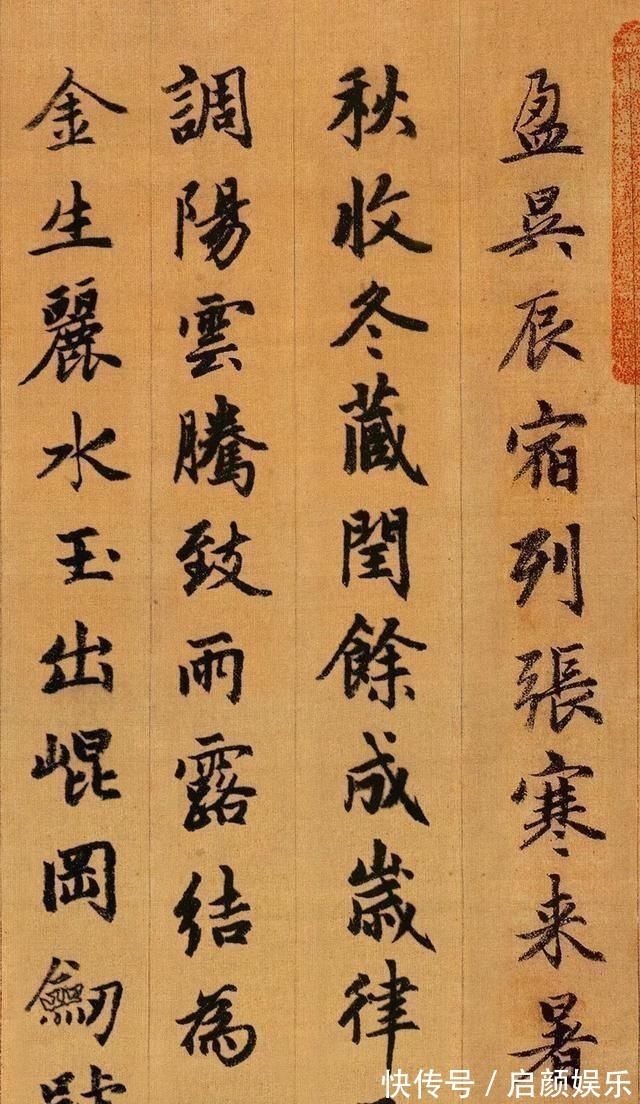 盈昃辰宿列張寒来暑
秋收冬蔵閏餘成歲律
調陽雲騰致雨露結為
金生麗水玉出崐岡劒
快传号／启颜娱乐